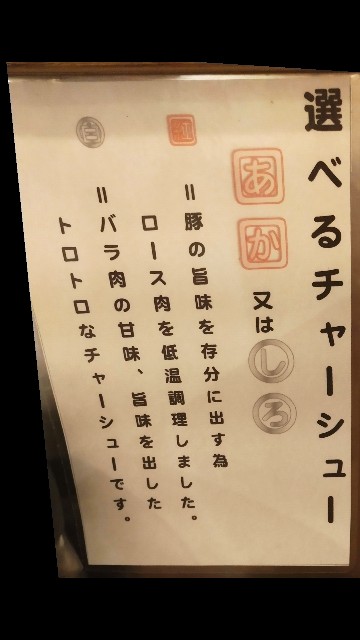 選べるチャーシュー
あか又はしろ
紅=豚の旨味を存分に出す為
ロース肉を低温調理しました。
白=バラ肉の甘味、旨味を出した
トロトロなチャーシューです。